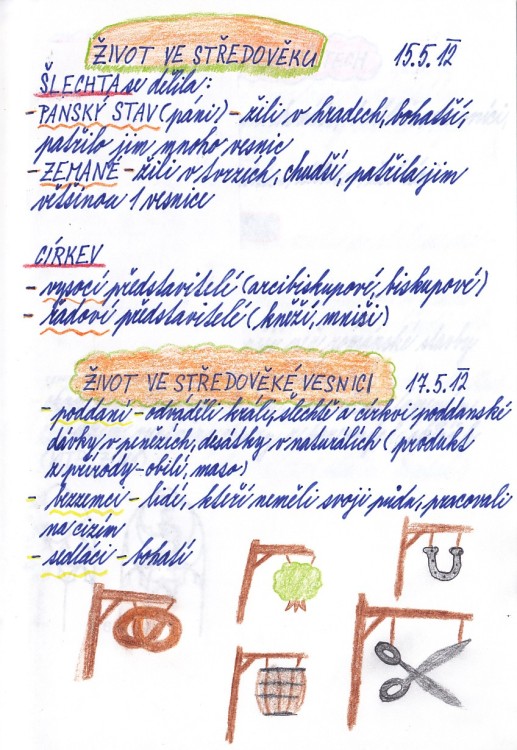 ŽIVOT VE STŘEDOVĚKU 15.5.12
ŠLECHTA se dělila:
- PANSKÝ STAV (páni) - žili v hradech, bohatší,
patřilo jim mnoho vesnic
- ZEMANÉ - žili v tvrzích, chudší, patřila jim
většinou 1 vesnice
CÍRKEV
- vysocí představitelé (arcibiskupové, biskupové)
- řadoví představitelé (kněží, mniši)
ŽIVOT VE STŘEDOVĚKÉ VESNICI 17.5.12
- poddaní - odváděli králi, šlechtě a církvi poddanské
dávky v penězích, desátky v naturálich (produkt
z přírody - obilí, maso)
- bezzemci - lidé, kteří neměli svoji půdu, pracovali
na cizím
- sedláci - bohatí